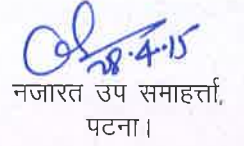 28.4.15
नजारत उप समाहर्त्ता,
पटना।